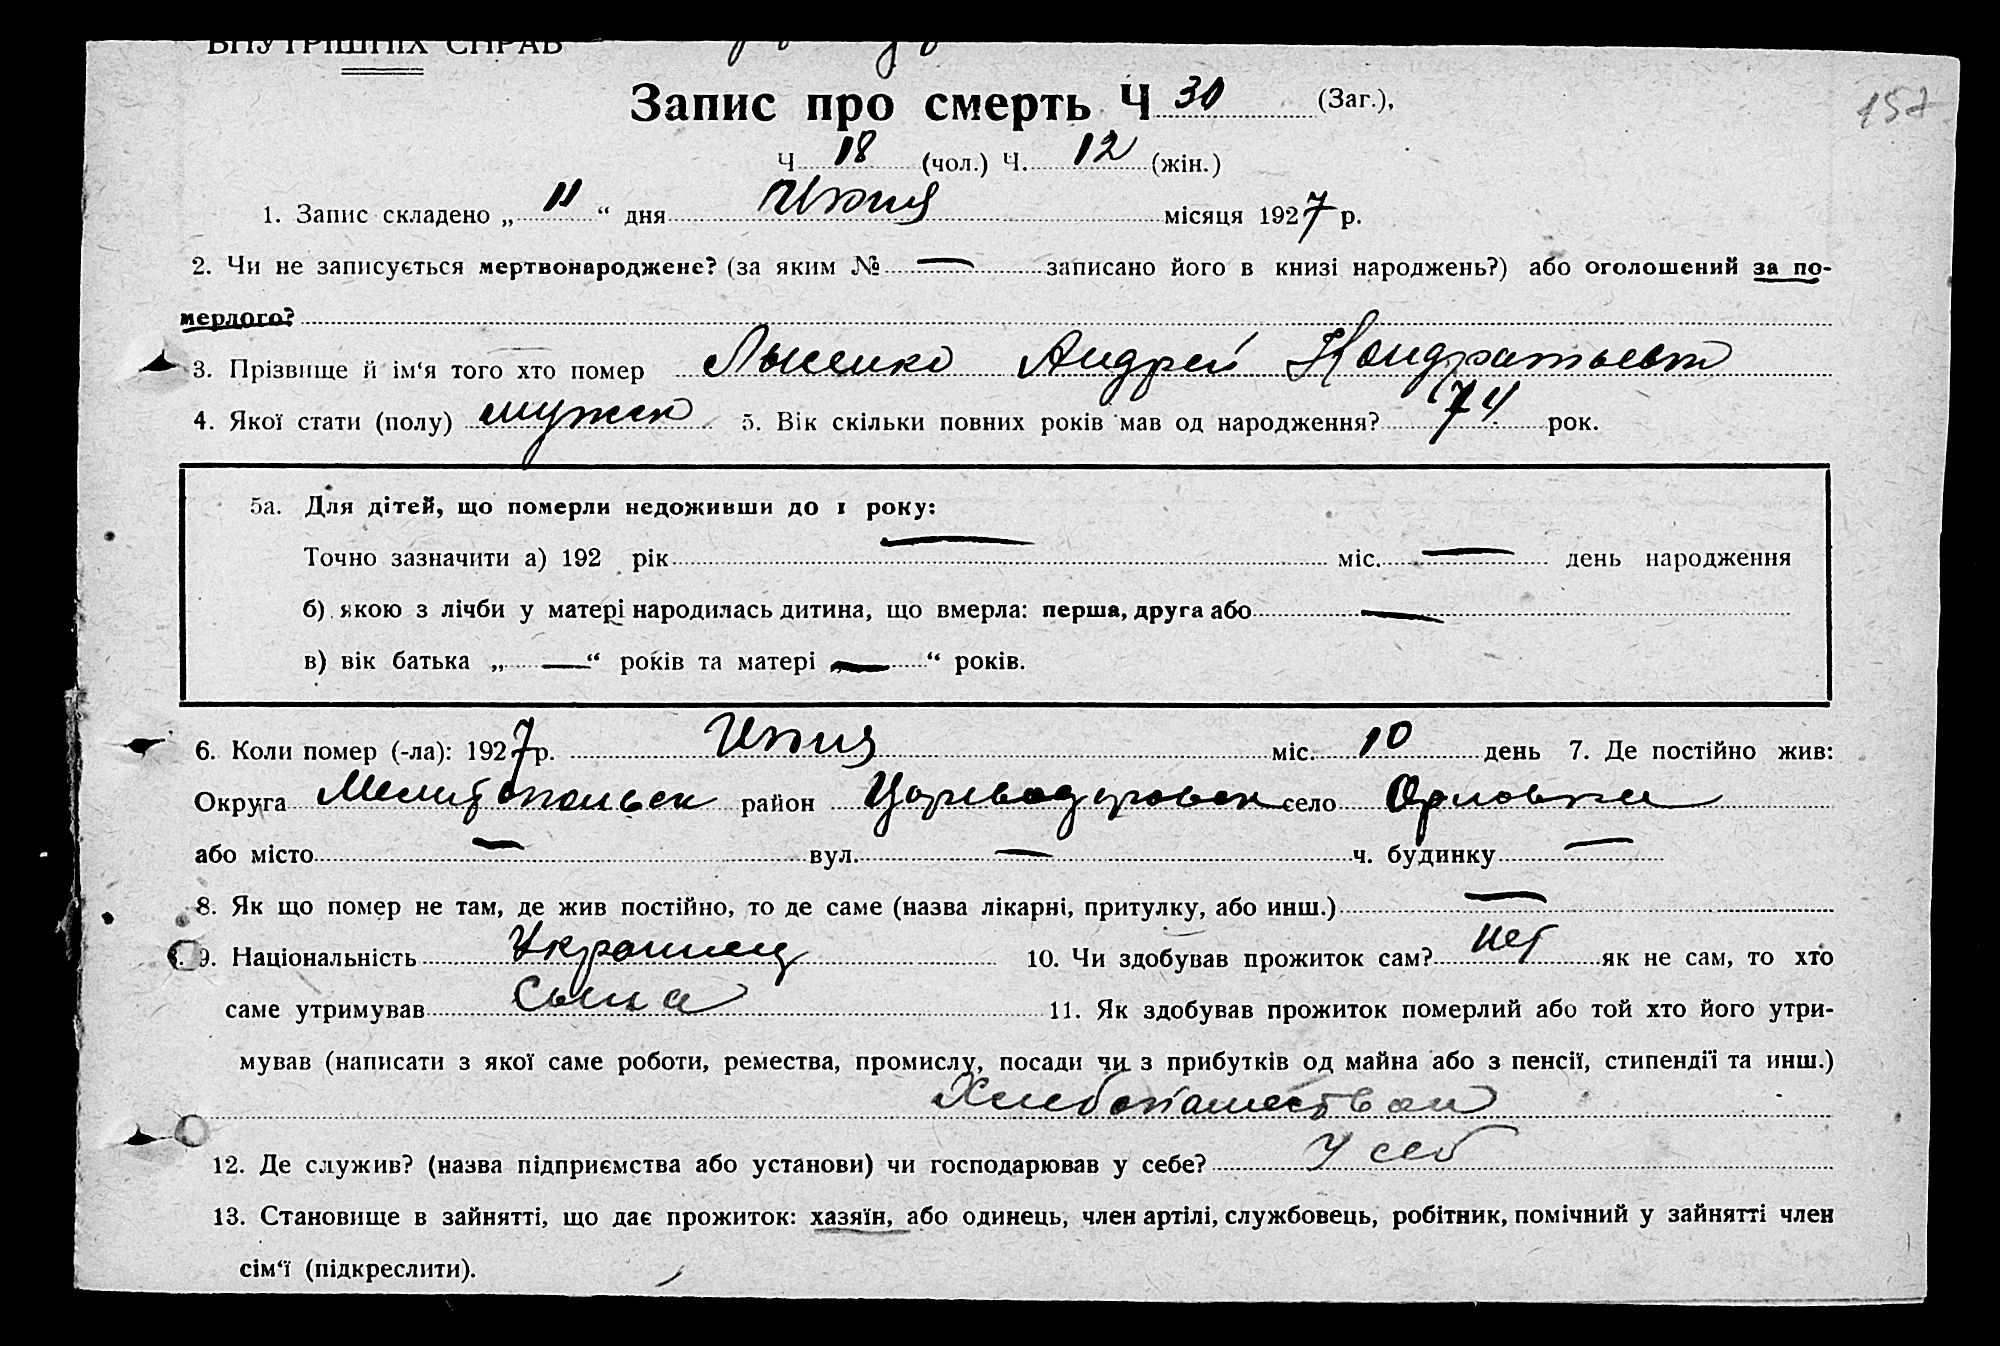 ВНУТРІШНІХ СПРАВ
Запис про смерть Ч 30 (Заг.),
157
Ч 18 (чол.) Ч. 12 (жін.)
1. Запис складено „ 11 “ дня Июня місяця 1927 р.
2. Чи не записується мертвонароджене? (за яким № — записано його в книзі народжень?) або оголошений за по-
мерлого?
3. Прізвище й ім'я того хто помер Лысенко Андрей Кондратьевт
4. Якої стати (полу) мужск 5. Вік скільки повних років мав од народження? 74 рок.
5а. Для дітей, що померли недоживши до 1 року:
Точно зазначити а) 192 рік — міс. — день народження
б) якою з лічби у матері народилась дитина, що вмерла: перша, друга або —
в) вік батька „ — “ років та матері „ — “ років.
6. Коли помер (-ла): 1927 р. Июня міс. 10 день 7. Де постійно жив:
Округа Мелитопольск район Цареводаровск село Орловка
або місто — вул. — ч. будинку —
8. Як що помер не там, де жив постійно, то де саме (назва лікарні, притулку, або инш.) —
9. Національність Украинец 10. Чи здобував прожиток сам? нет як не сам, то хто
саме утримував Сына 11. Як здобував прожиток померлий або той хто його утри-
мував (написати з якої саме роботи, ремества, промислу, посади чи з прибутків од майна або з пенсії, стипендії та инш.)
Хлебопашеством
12. Де служив? (назва підприємства або установи) чи господарював у себе? У себ
13. Становище в зайнятті, що дає прожиток: хазяїн, або одинець, член артілі, службовець, робітник, помічний у зайнятті член
сім'ї (підкреслити).